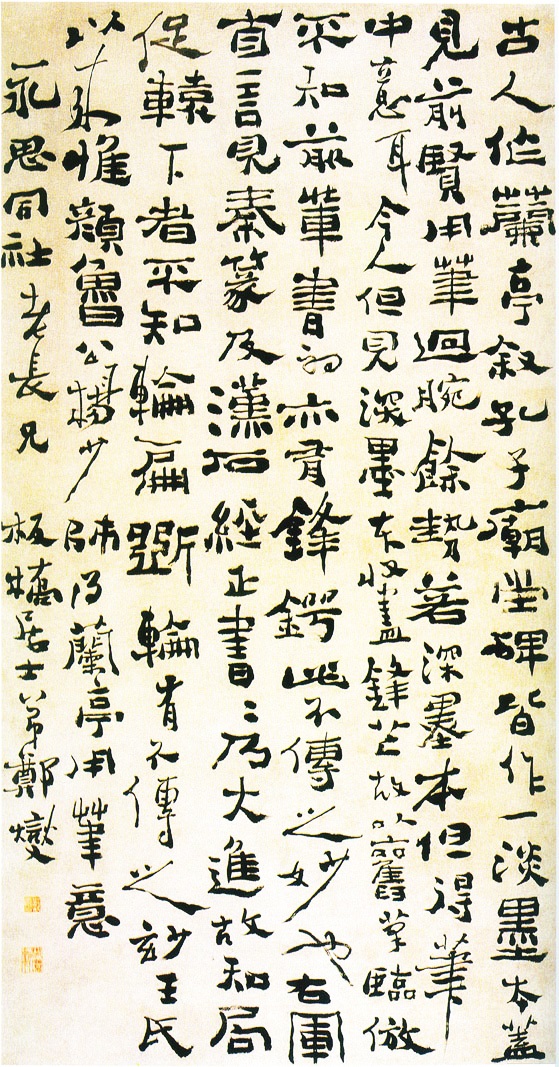 古人作蘭亭叙孔子廟堂碑皆作一淡墨本蓋
見前賢用筆迴腕餘勢若深墨本但得筆
中意耳今人但見深墨本收盡鋒芒故以舊筆臨倣
不知前輩書初亦有鋒鍔此不傳之妙也右軍
直言見秦篆及漢石經正書〻乃大進故知局
促轅下者不知輪扁斲輪有不傳之妙王氏
以來惟顏魯公楊少師得蘭亭用筆意
永思同社老長兄 板橋居士弟鄭燮